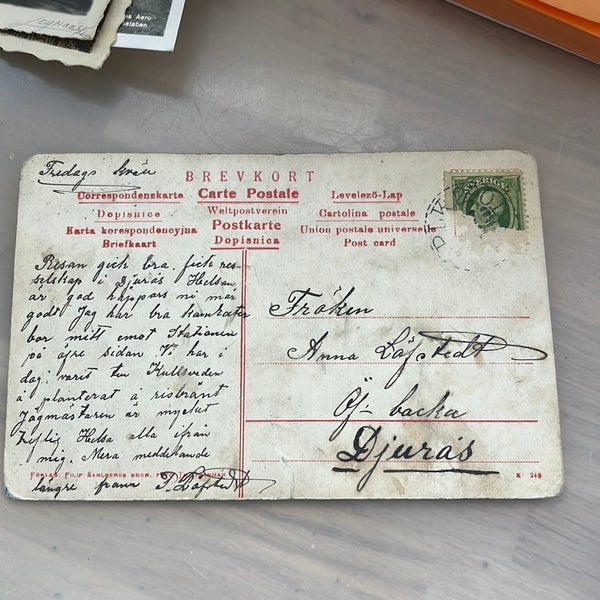 Aero
staben
Fredags kväll
BREVKORT
Correspondenskarte Carte Postale Levelező-Lap
Dopisnice Weltpostverein Cartolina postale
Karta korespondencyjna Postkarte Union postale universelle
Briefkaart Dopisnica Post card
SVERIGE
Resan gick bra. fick res-
selskap i Djurås Helsan
är god hoppas ni mår
godt Jag har bra kamrater
bor mitt emot Stationen
på öfre sidan. Vi har i
dag varit ten Kullsveden
å planterat å risbränt
Jägmästaren är mycket
hyflig Helsa alla ifrån
mig. Mera meddelande
längre fram Löfstedt
Fröken
Anna Löfstedt
Öf- backa
Djurås